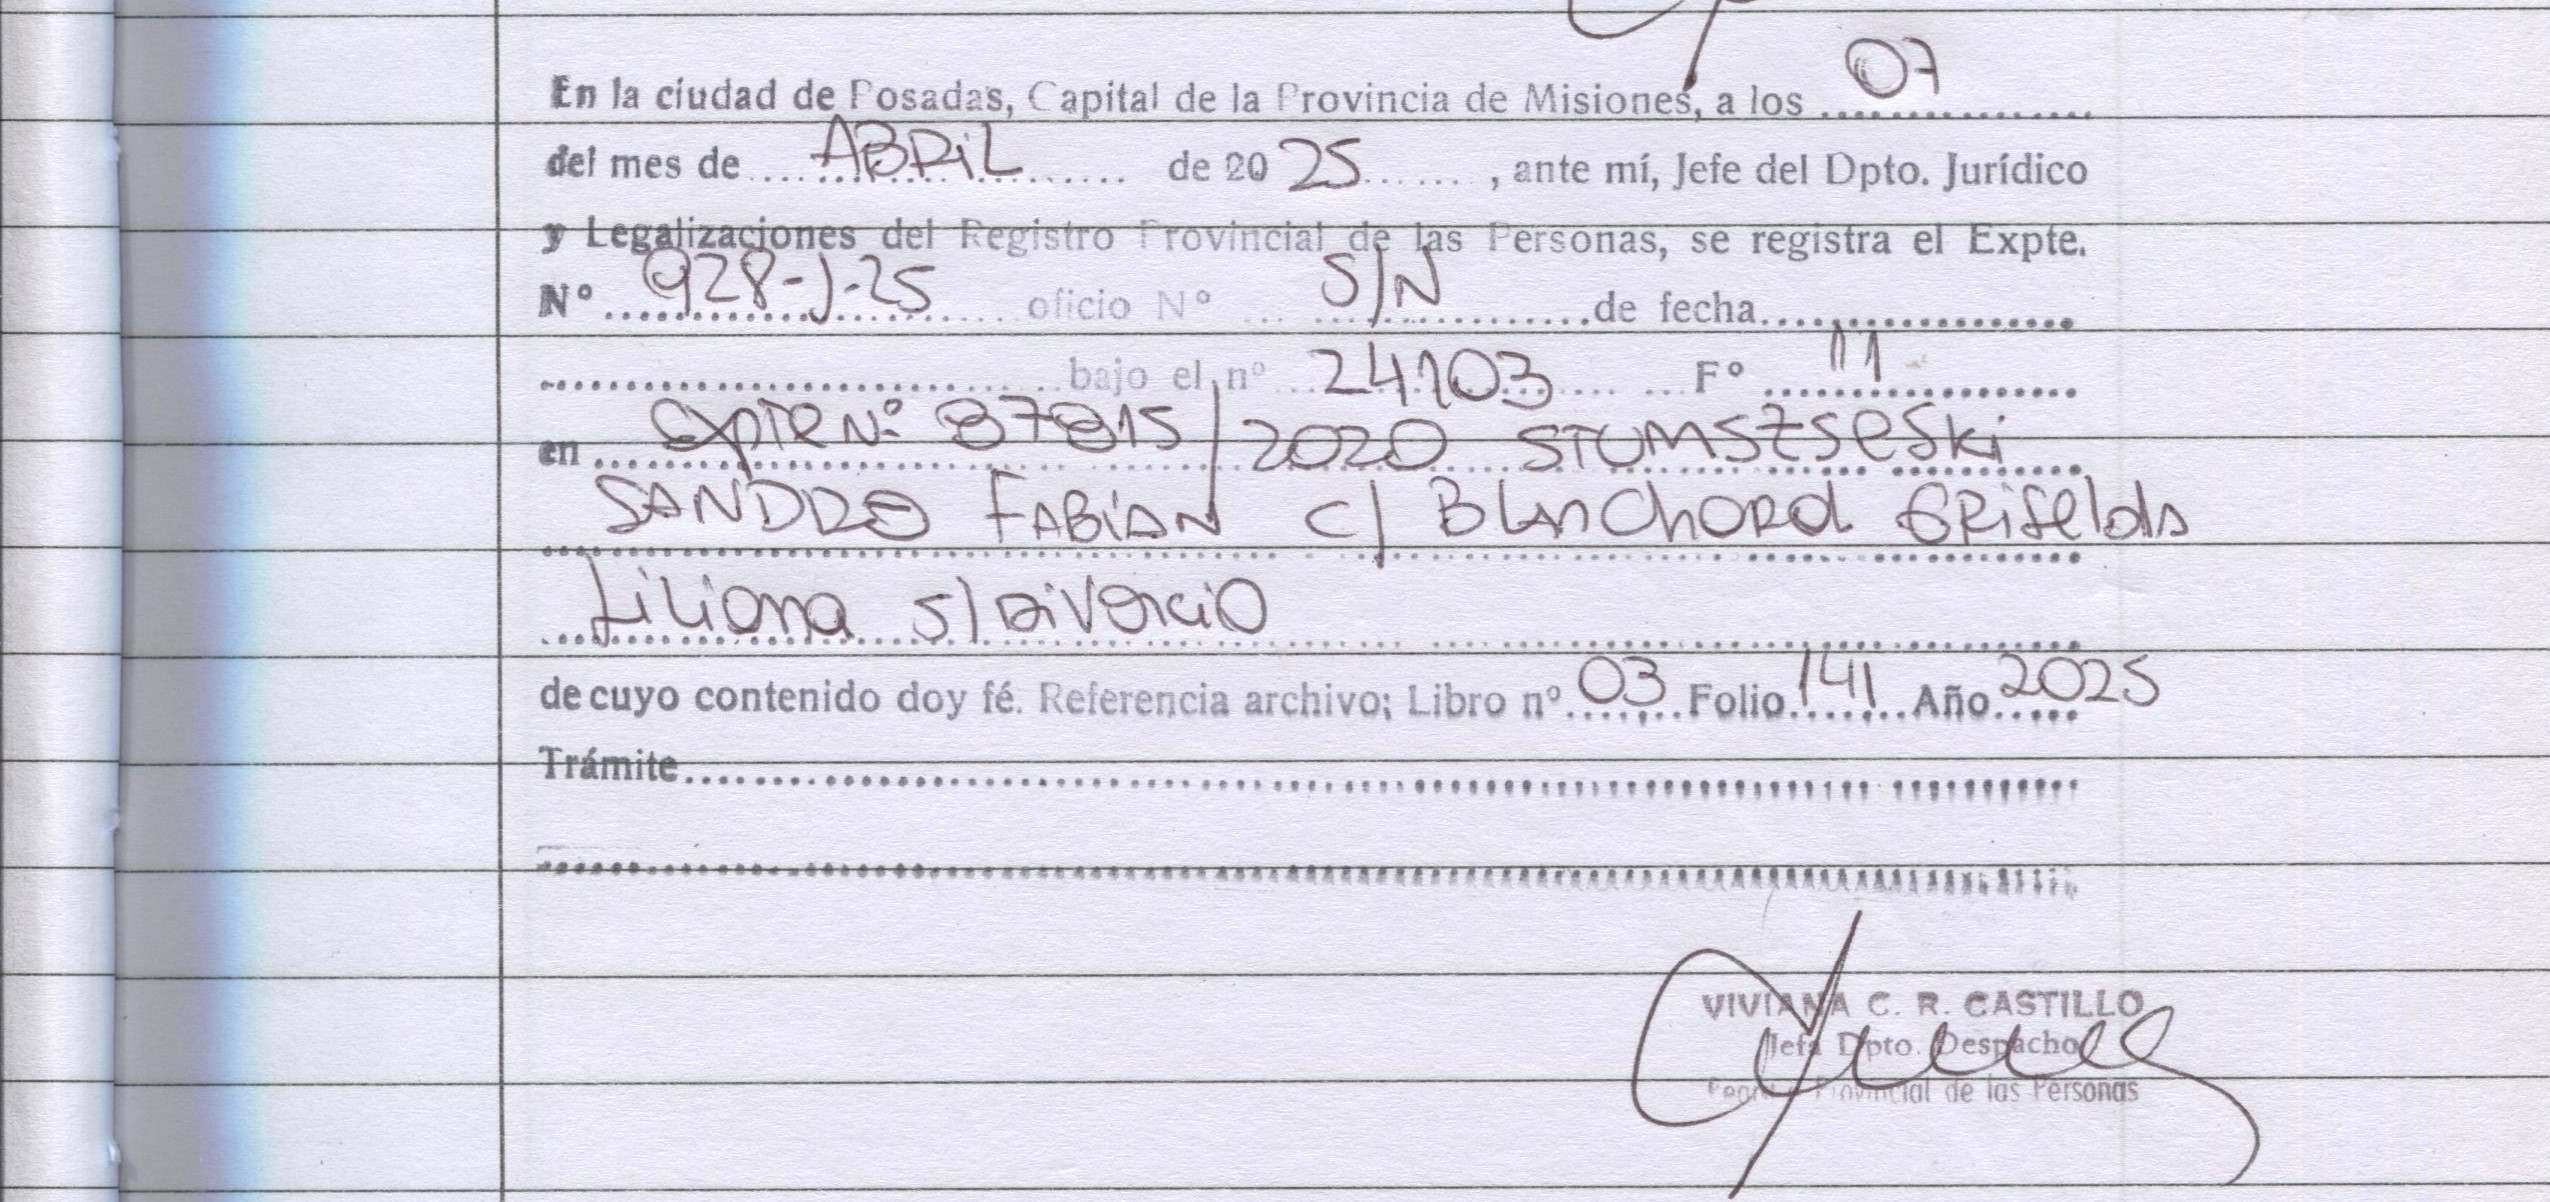 En la ciudad de Posadas, Capital de la Provincia de Misiones, a los 07
del mes de ABRiL de 20 25, ante mí, Jefe del Dpto. Jurídico
y Legalizaciones del Registro Provincial de las Personas, se registra el Expte.
Nº 928-J-25 oficio Nº S/N de fecha
bajo el nº 24103 Fº 11
en ExpTe Nº 87815/2020 STUMSZSESki
SANDRO FABiAN c/ Blanchard Griselda
Liliana s/DiVorciO
de cuyo contenido doy fé. Referencia archivo; Libro nº 03 Folio 141 Año 2025
Trámite
VIVIANA C. R. CASTILLO
Jefa Dpto. Despacho
Provincial de las Personas